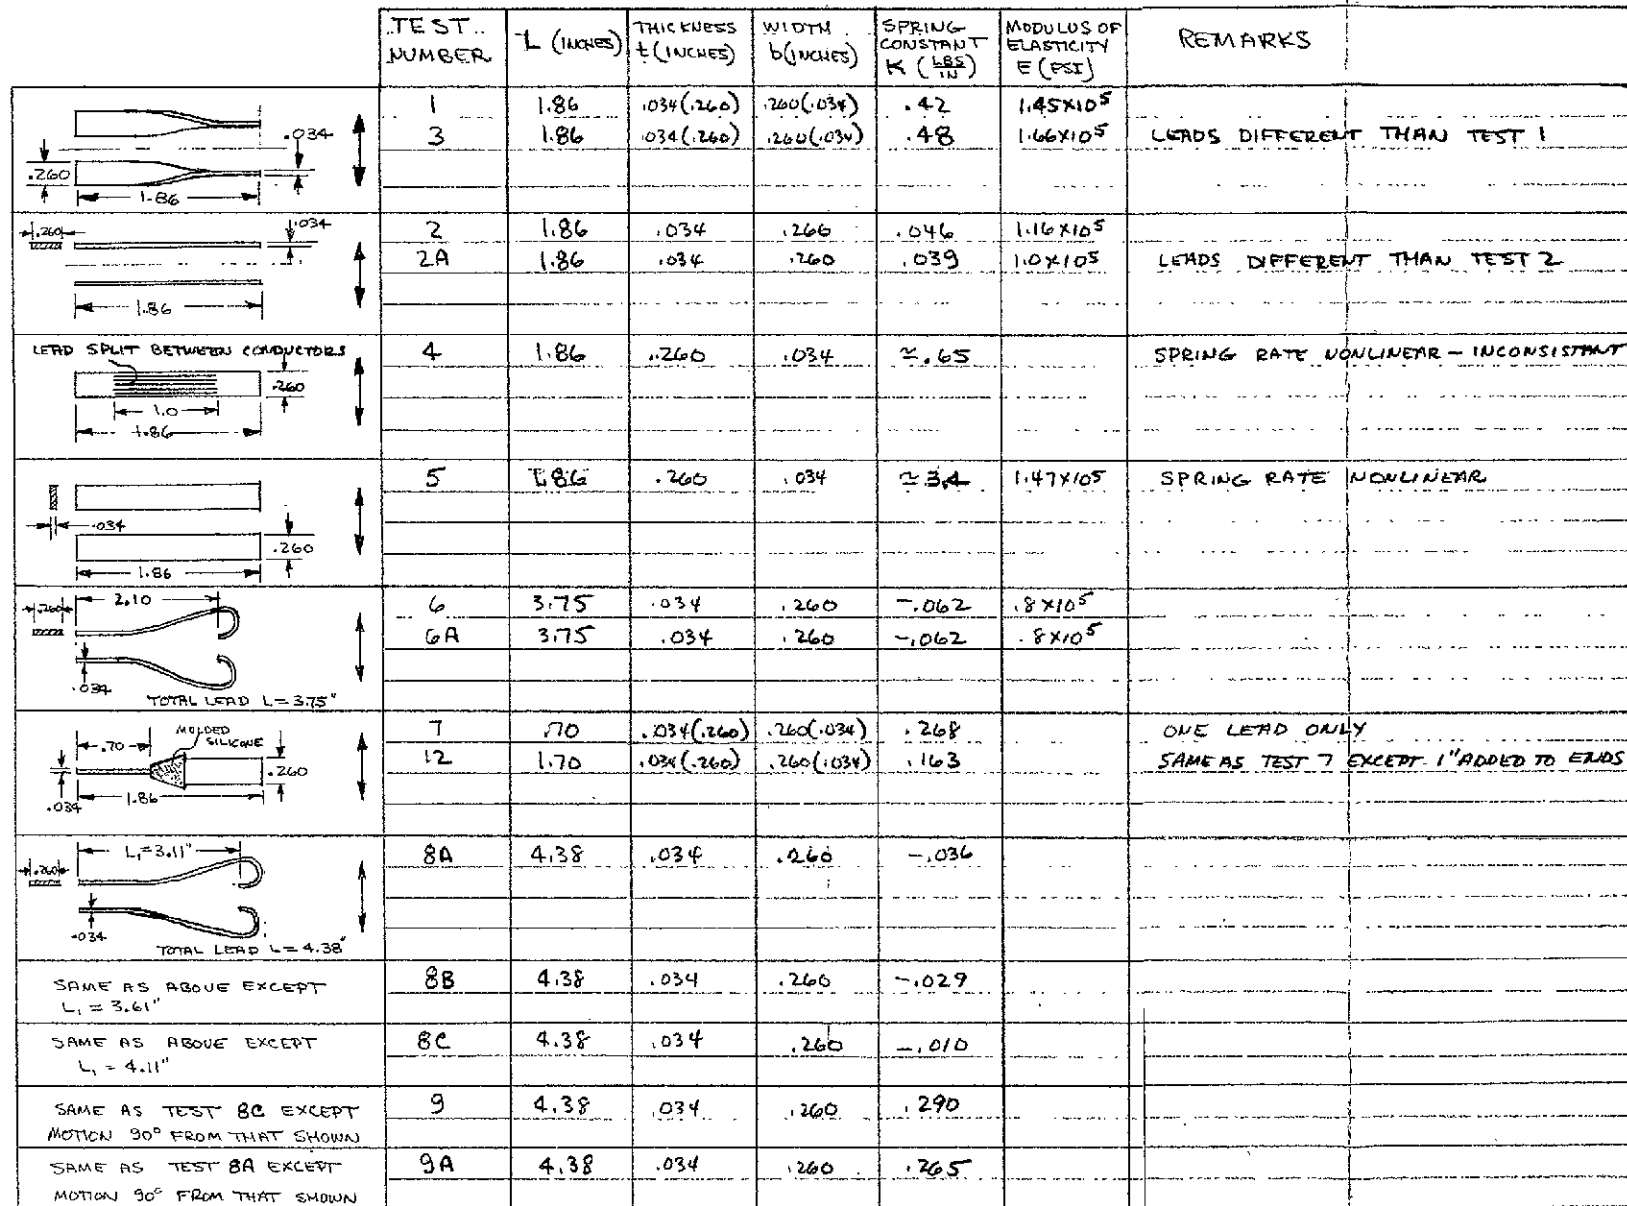 TEST NUMBER L (INCHES) THICKNESS t (INCHES) WIDTH b (INCHES) SPRING CONSTANT K (LBS/IN) MODULUS OF ELASTICITY E (PSI) REMARKS
.034
.260
1.86
1 1.86 .034(.260) .260(.034) .42 1.45×10⁵
3 1.86 .034(.260) .260(.034) .48 1.66×10⁵ LEADS DIFFERENT THAN TEST 1
.260
.034
1.86
2 1.86 .034 .260 .046 1.16×10⁵
2A 1.86 .034 .260 .039 1.0×10⁵ LEADS DIFFERENT THAN TEST 2
LEAD SPLIT BETWEEN CONDUCTORS
.260
1.0
1.86
4 1.86 .260 .034 ≃.65 SPRING RATE NONLINEAR - INCONSISTANT
.034
.260
1.86
5 1.86 .260 .034 ≃3.4 1.47×10⁵ SPRING RATE NONLINEAR
2.10
.260
.034
TOTAL LEAD L = 3.75"
6 3.75 .034 .260 -.062 .8×10⁵
6A 3.75 .034 .260 -.062 .8×10⁵
MOLDED SILICONE
.70
.260
.034
1.86
7 .70 .034(.260) .260(.034) .268 ONE LEAD ONLY
12 1.70 .034(.260) .260(.034) .163 SAME AS TEST 7 EXCEPT 1" ADDED TO ENDS
L₁=3.11"
.260
.034
TOTAL LEAD L = 4.38"
8A 4.38 .034 .260 -.036
SAME AS ABOVE EXCEPT
L₁ = 3.61"
8B 4.38 .034 .260 -.029
SAME AS ABOVE EXCEPT
L₁ = 4.11"
8C 4.38 .034 .260 -.010
SAME AS TEST 8C EXCEPT
MOTION 90° FROM THAT SHOWN
9 4.38 .034 .260 .290
SAME AS TEST 8A EXCEPT
MOTION 90° FROM THAT SHOWN
9A 4.38 .034 .260 .265